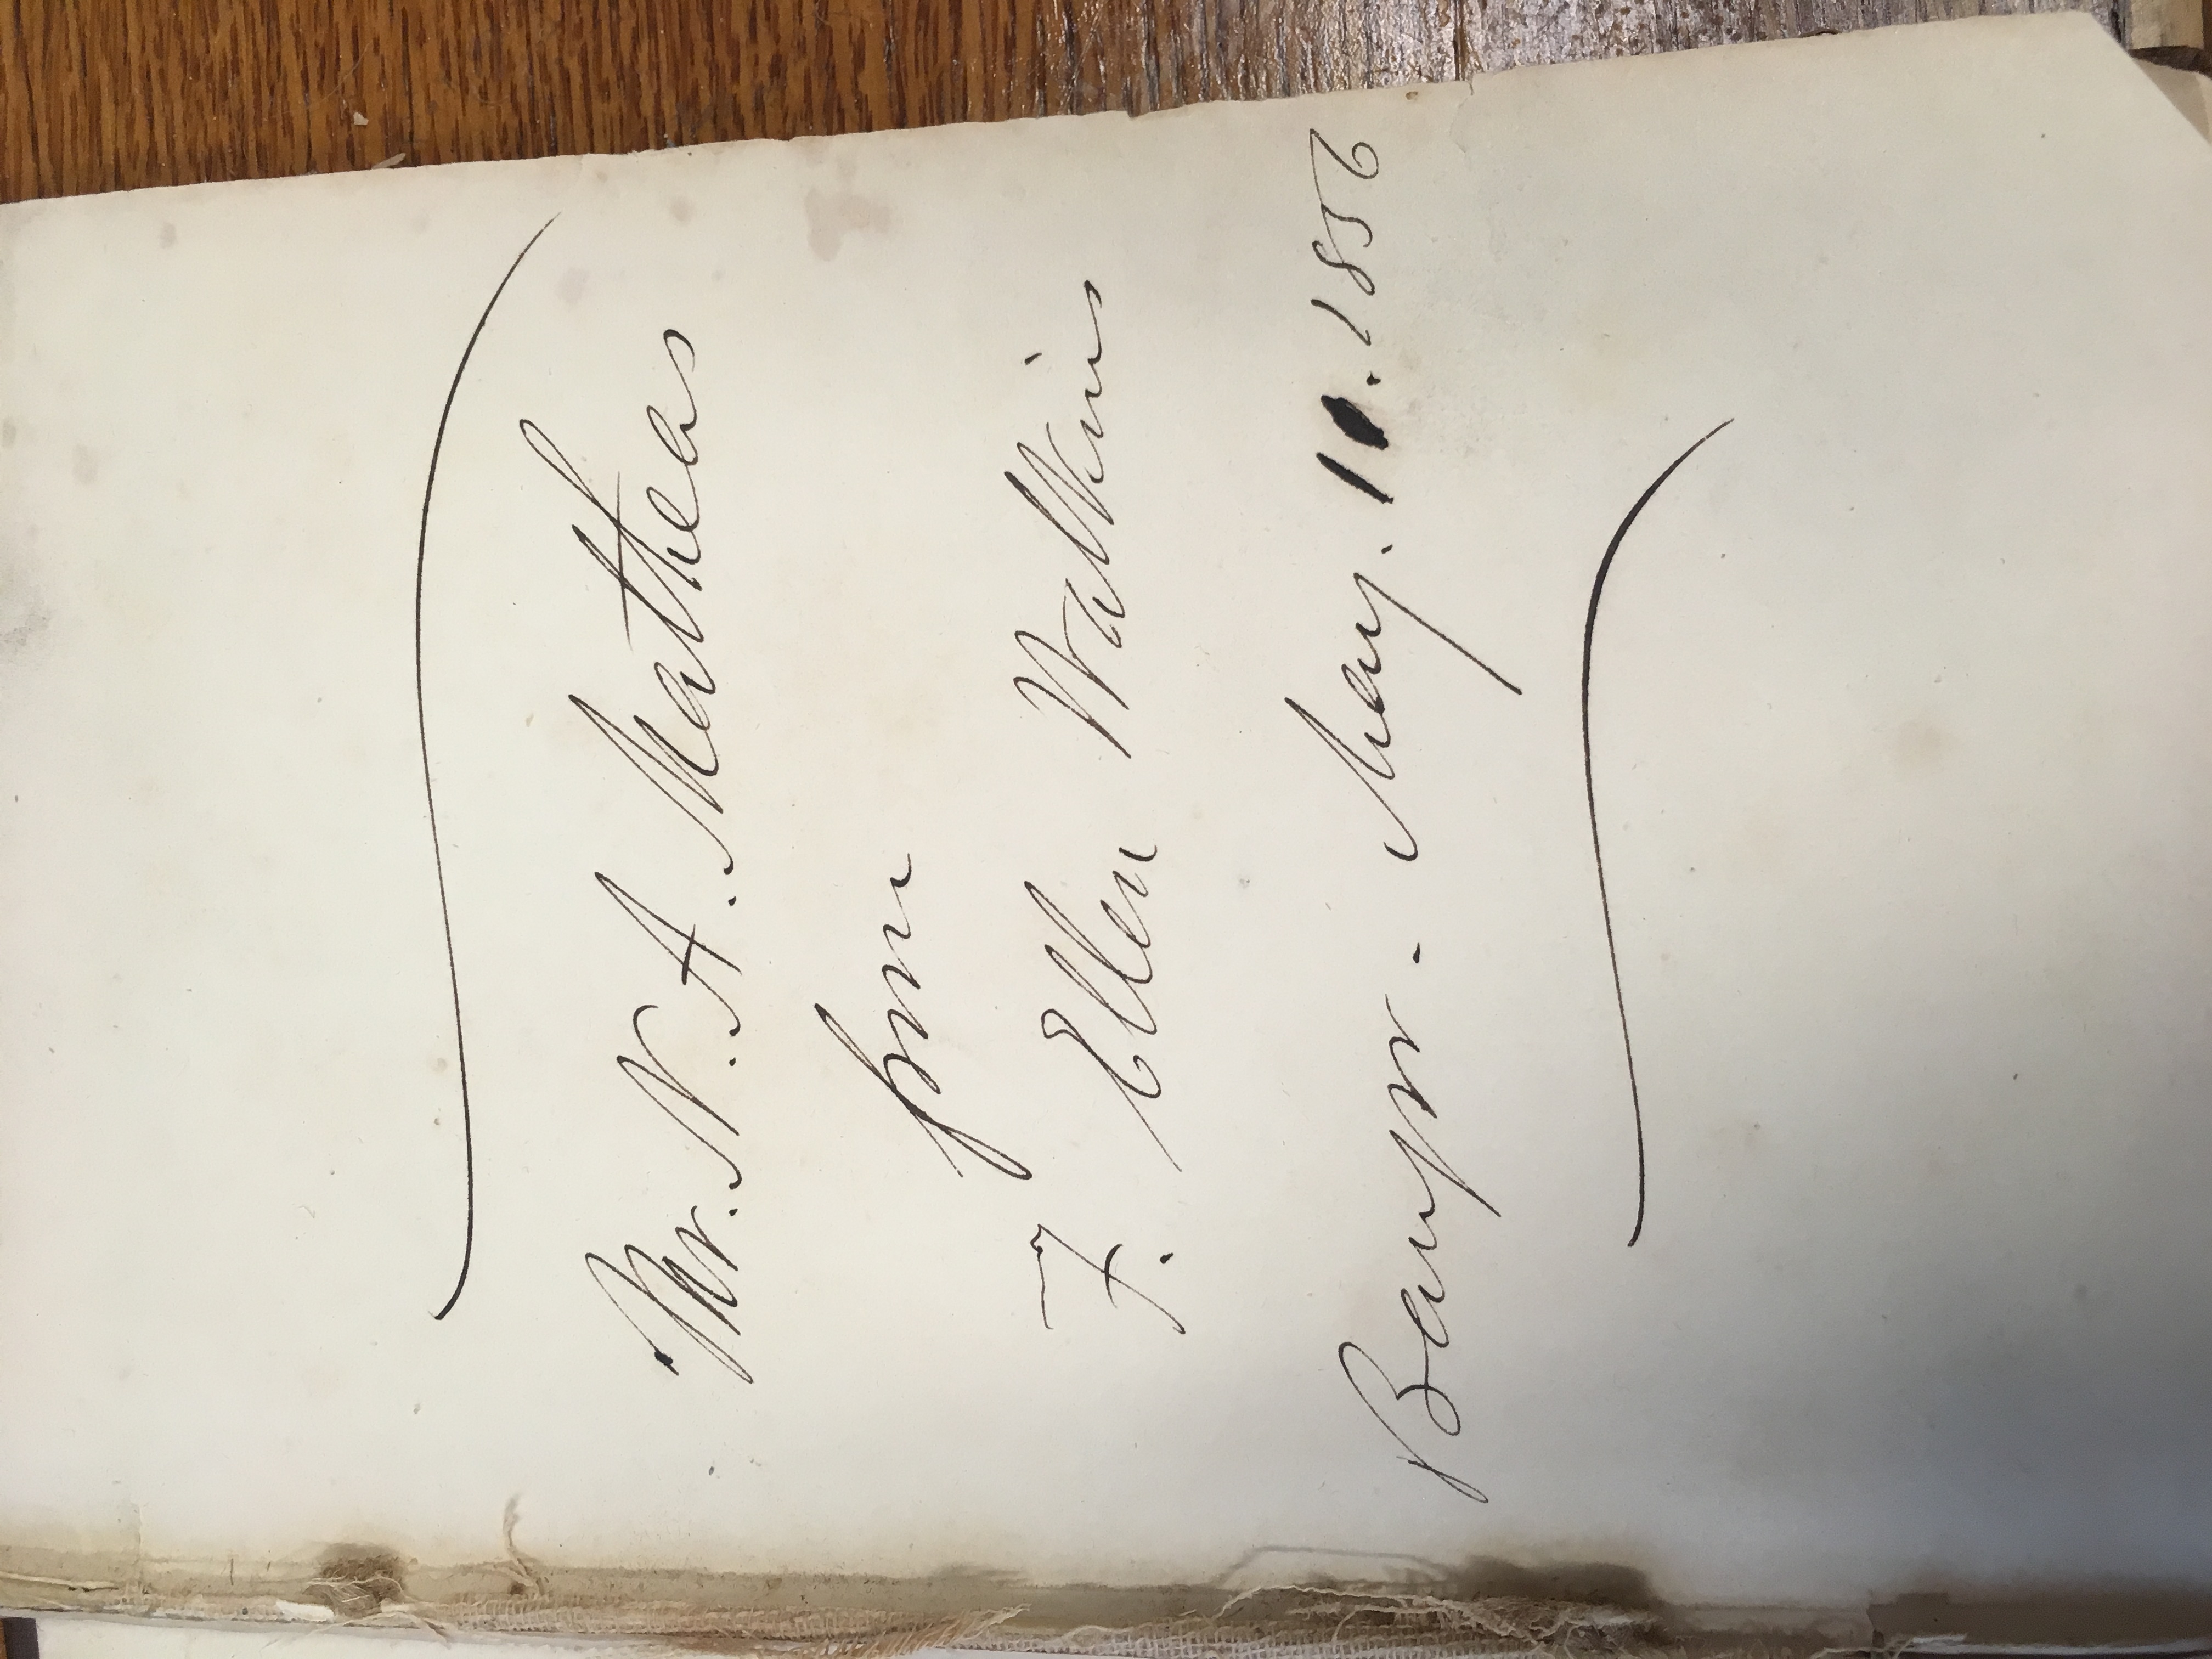 Mr. N. A. Mathews
from
F. Ellen Watkins
Bangor - May. 10. 1856